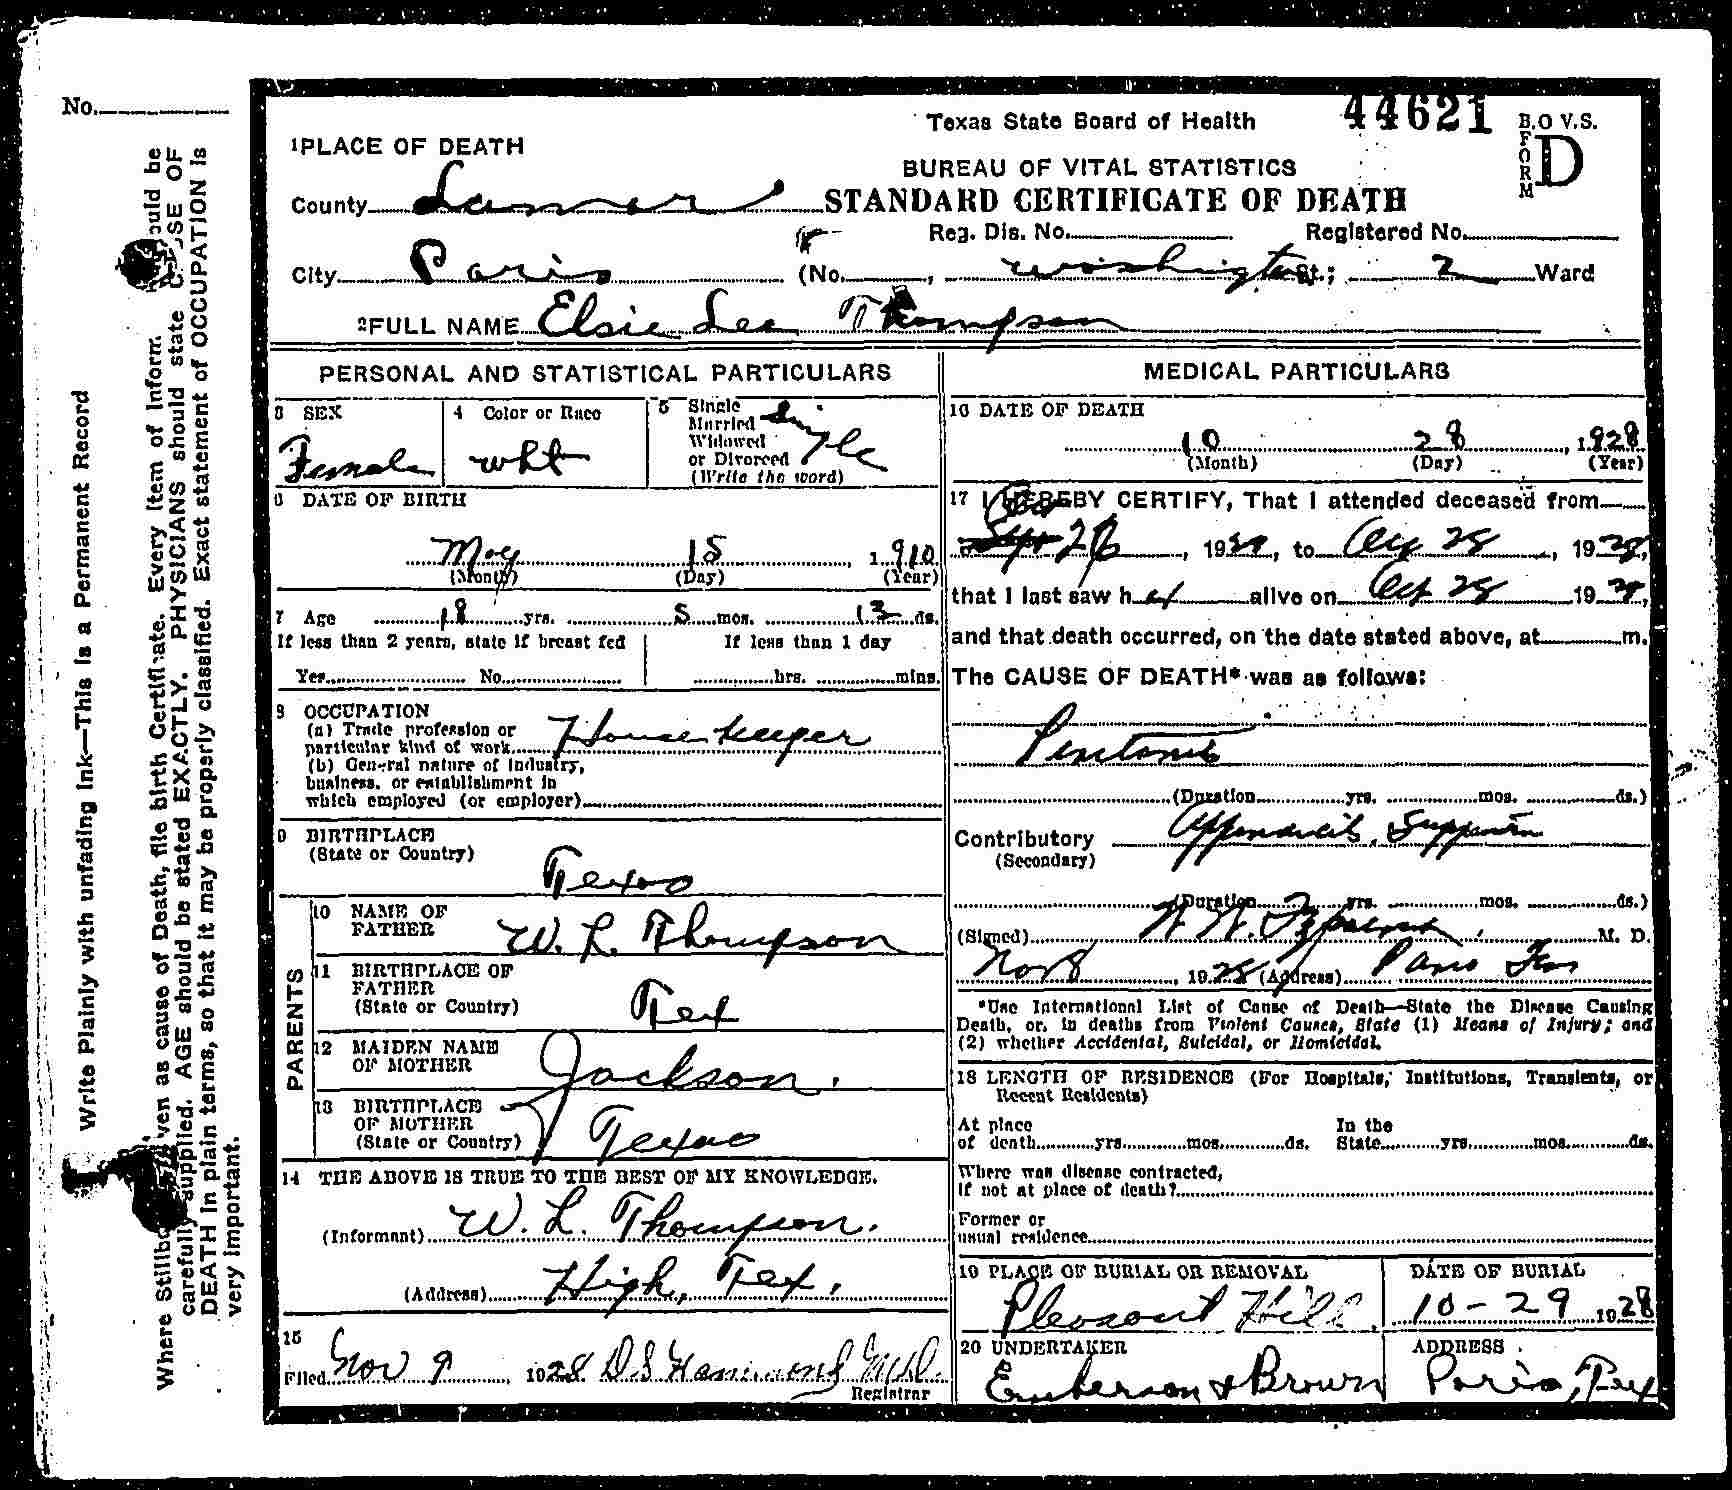 No.
Write Plainly with unfading Ink—This is a Permanent Record
Where Stillbo ven as cause of Death, file birth Certificate. Every Item of Inform ould be
carefully supplied. AGE should be stated EXACTLY. PHYSICIANS should state C USE OF
DEATH in plain terms, so that it may be properly classified. Exact statement of OCCUPATION is
very important.
Texas State Board of Health
44621
B.O V.S.
FORM D
1 PLACE OF DEATH
BUREAU OF VITAL STATISTICS
County Lamar STANDARD CERTIFICATE OF DEATH
Reg. Dis. No. Registered No.
City Paris (No. , Washington St.; 2 Ward
2 FULL NAME Elsie Lee Thompson
PERSONAL AND STATISTICAL PARTICULARS
3 SEX
Female
4 Color or Race
wht
5 Single
Married
Widowed
or Divorced
(Write the word)
Single
6 DATE OF BIRTH
May 15 1910
(Month) (Day) (Year)
7 Age 18 yrs. 5 mos. 13 ds.
If less than 2 years, state if breast fed
Yes No
If less than 1 day
hrs. mins.
8 OCCUPATION
(a) Trade profession or
particular kind of work Housekeeper
(b) General nature of Industry,
business, or establishment in
which employed (or employer)
9 BIRTHPLACE
(State or Country)
Texas
PARENTS
10 NAME OF
FATHER W. L. Thompson
11 BIRTHPLACE OF
FATHER
(State or Country) Tex
12 MAIDEN NAME
OF MOTHER Jackson.
13 BIRTHPLACE
OF MOTHER
(State or Country) Texas
14 THE ABOVE IS TRUE TO THE BEST OF MY KNOWLEDGE.
(Informant) W. L. Thompson.
(Address) High, Tex.
15
Filed Nov 9 1928 D.S. Hammond M.D.
Registrar
MEDICAL PARTICULARS
16 DATE OF DEATH
10 28 1928
(Month) (Day) (Year)
17 I HEREBY CERTIFY, That I attended deceased from
Oct 26, 1928, to Oct 28, 1928,
that I last saw her alive on Oct 28 1928,
and that death occurred, on the date stated above, at m.
The CAUSE OF DEATH* was as follows:
Peritonitis
(Duration yrs. mos. ds.)
Contributory Appendicitis, Suppurative
(Secondary)
(Duration yrs. mos. ds.)
(Signed) M. D.
Nov 8, 1928 (Address) Paris Tex
*Use International List of Cause of Death—State the Disease Causing
Death, or, in deaths from Violent Causes, State (1) Means of Injury; and
(2) whether Accidental, Suicidal, or Homicidal.
18 LENGTH OF RESIDENCE (For Hospitals, Institutions, Transients, or
Recent Residents)
At place
of death yrs. mos. ds.
In the
State yrs. mos. ds.
Where was disease contracted,
if not at place of death?
Former or
usual residence
19 PLACE OF BURIAL OR REMOVAL
Pleasant Hill.
DATE OF BURIAL
10-29 1928
20 UNDERTAKER
Emberson & Brown
ADDRESS
Paris, Tex